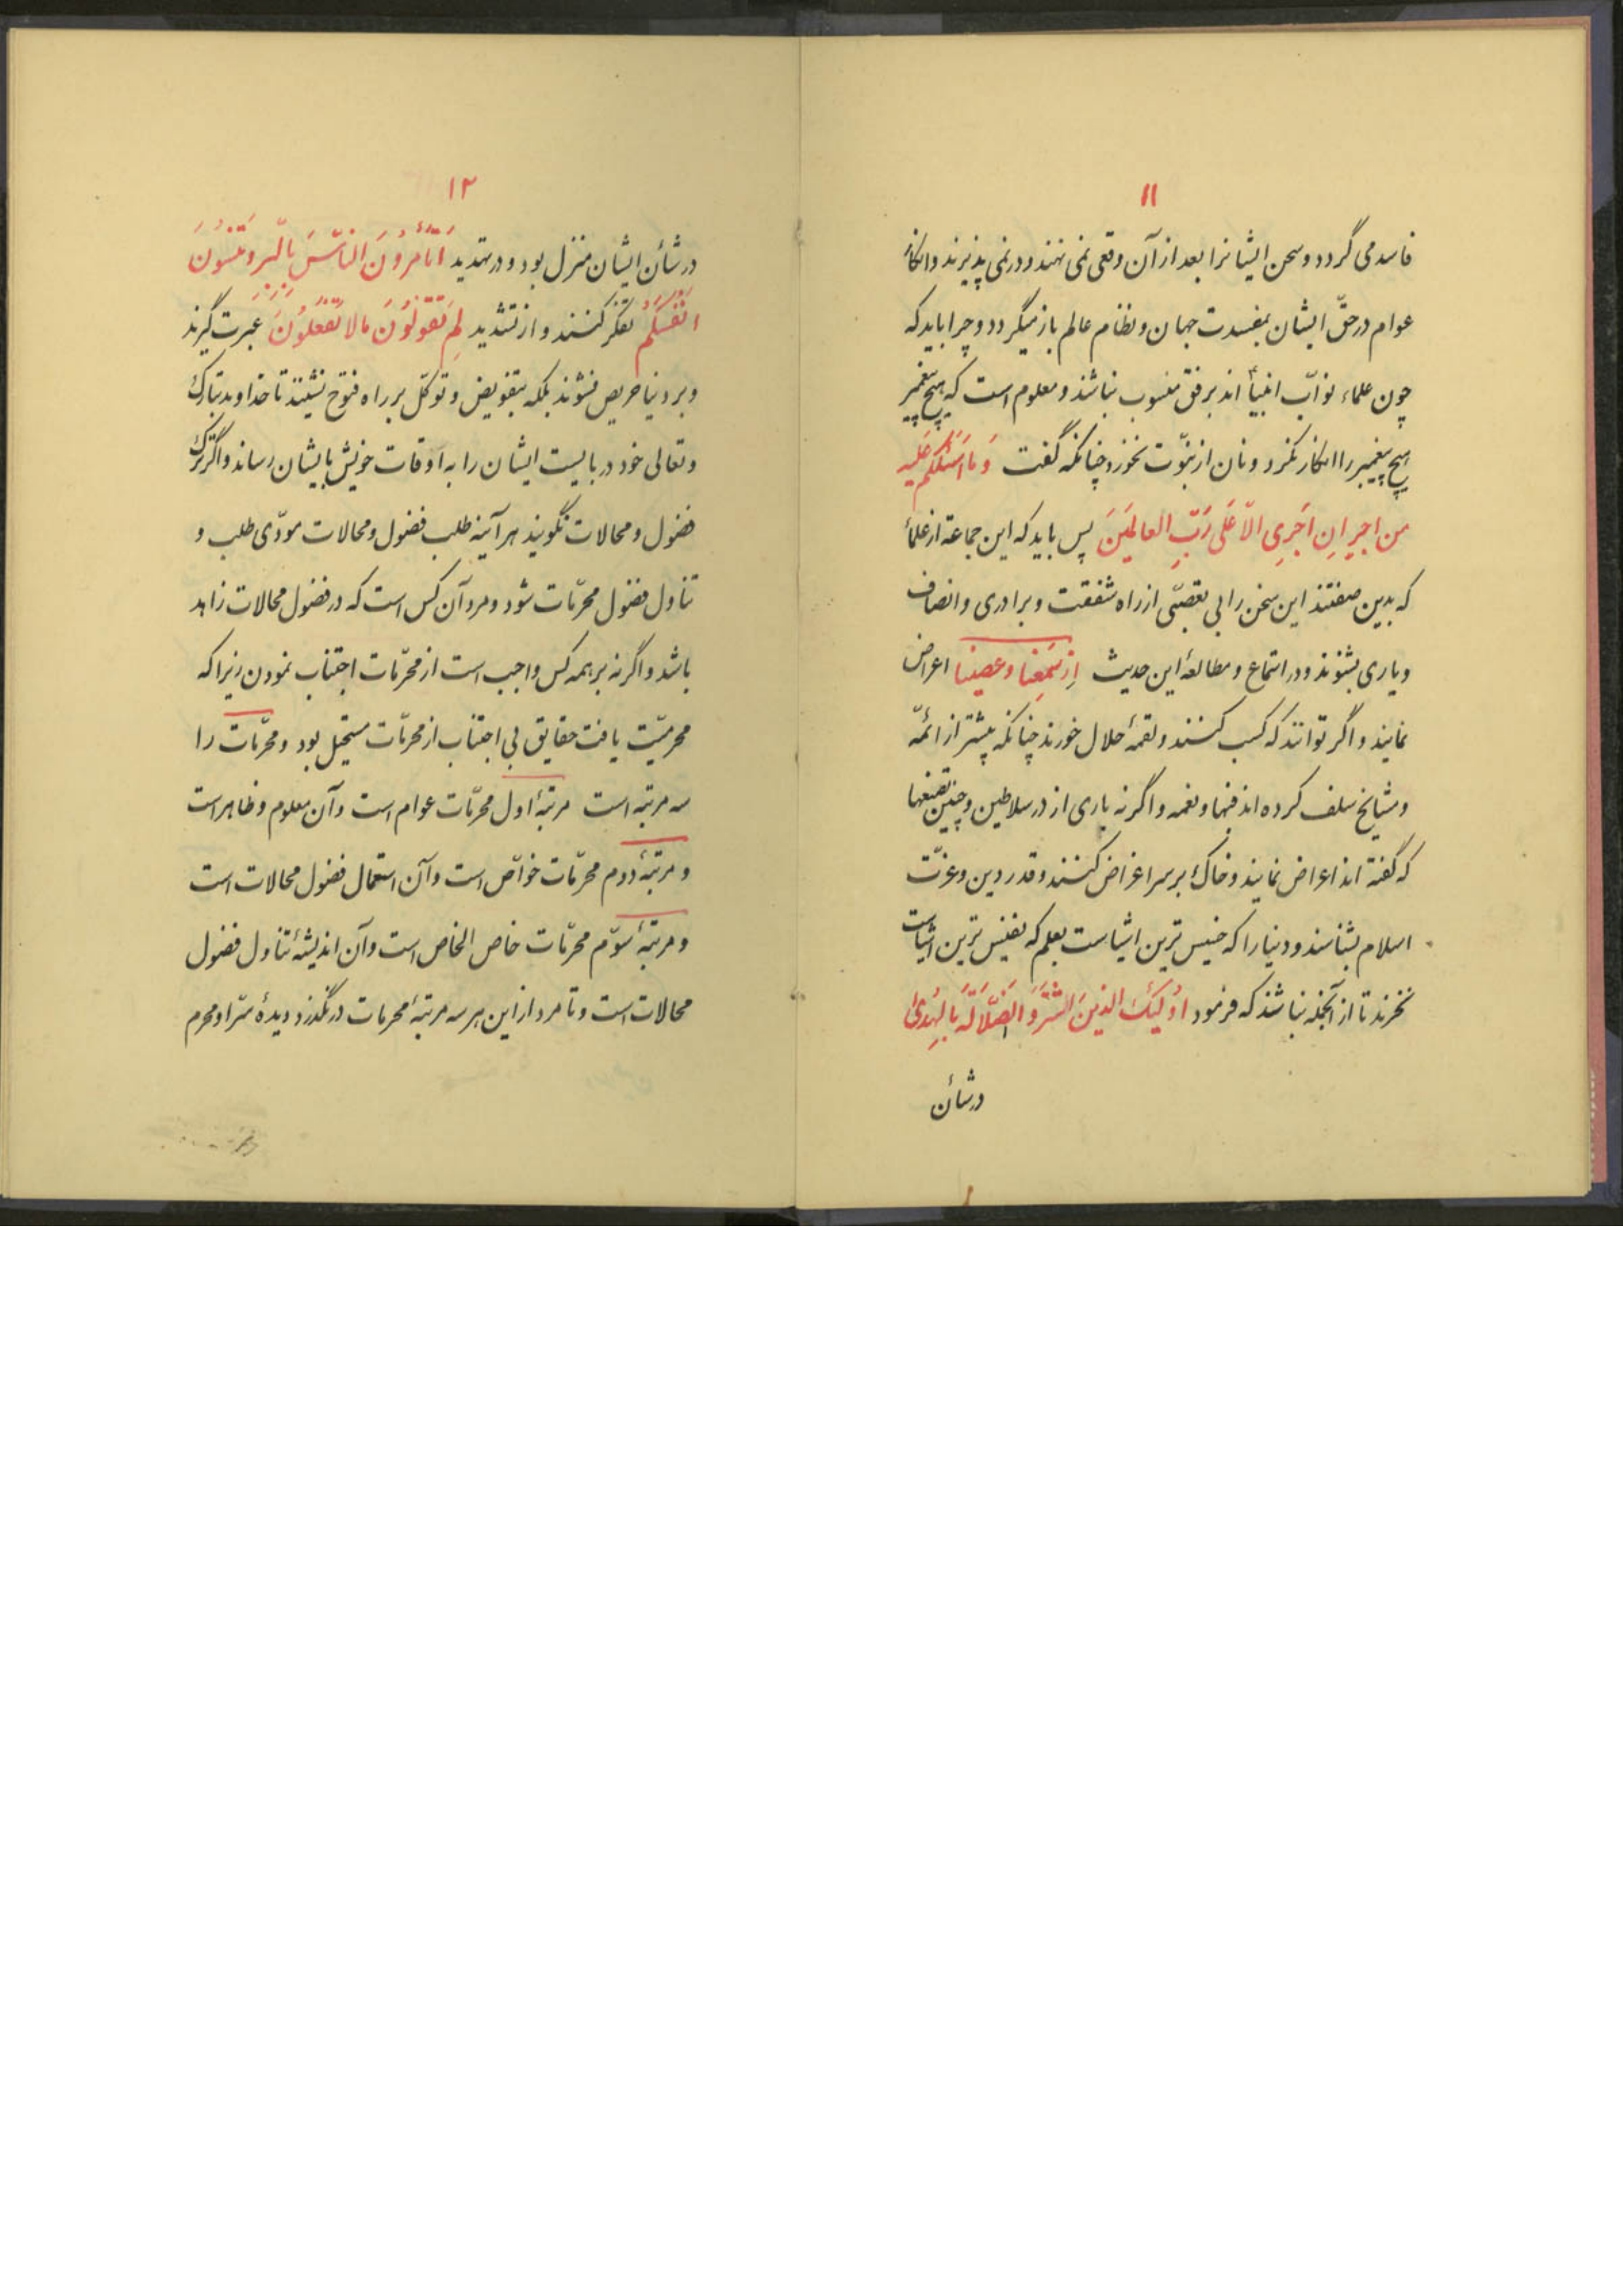 ۱۱
فاسد می گردد و سخن ایشانرا بعد از آن وقعی نمی نهند و در نمی پذیرند و انکار
عوام در حقّ ایشان بمفسدت جهان و نظام عالم باز میگردد و چرا باید که
چون علماء نوّاب انبیاء اند برفق منسوب نباشند و معلوم است که هیچ پیغمبر
هیچ پیغمبر را انکار نکرد و نان از نبوّت نخورد چنانکه گفت وَ مَا اَسْئَلُکُم عَلَیه
من اجرٍ اِن اَجرِی الّا عَلی رَبّ العالَمینَ پس باید که این جماعة از علماء
که بدین صفتند این سخن را بی تعصّبی از راه شفقت و برادری و انصاف
و یاری بشنوند و در استماع و مطالعهٔ این حدیث از سَمِعنا و عصینا اعراض
نمایند و اگر توانند که کسب کنند و لقمهٔ حلال خورند چنانکه پیشتر از ائمّه
و مشایخ سلف کرده اند فبها و نعمه و اگر نه باری از در سلاطین و چنین تصنعها
که گفته اند اعراض نمایند و خاک بر سر اغراض کنند و قدر دین و عزّت
اسلام بشناسند و دنیا را که خسیس ترین اشیاست بعلم که نفیس ترین اشیاست
نخرند تا از آنجمله نباشند که فرمود اُولئِکَ الذینَ اشتَرَوُ الضّلالَةَ بالهُدیٰ
در شأن
۱۲
در شأن ایشان منزل بود و در تهدید اَتَأمرُونَ النّاسَ بِالبِرّ و تَنسَونَ
اَنفُسَکُم تفکر کنند و از تشدید لِمَ تَقولُونَ مالا تَفعَلُونَ عبرت گیرند
و بر دنیا حریص نشوند بلکه بتفویض و توکّل بر راه فتوح نشینند تا خداوند تبارک
و تعالی خود دربایست ایشان را به اوقات خویش بایشان رساند و اگر ترک
فضول و محالات نگویند هر آینه طلب فضول و محالات مودّی طلب و
تناول فضول محرّمات شود و مرد آن کس است که در فضول محالات زاهد
باشد و اگر نه بر همه کس واجب است از محرّمات اجتناب نمودن زیرا که
محرمیّت یافت حقایق بی اجتناب از محرمّات مستحیل بود و محرّمات را
سه مرتبه است مرتبهٔ اول محرّمات عوام است و آن معلوم و ظاهر است
و مرتبهٔ دوم محرّمات خواّص است و آن استعمال فضول محالات است
و مرتبهٔ سوّم محرّمات خاص الخاص است و آن اندیشهٔ تناول فضول
محالات است و تا مرد از این هر سه مرتبهٔ محرمات درنگذرد دیدهٔ سّر او محرم